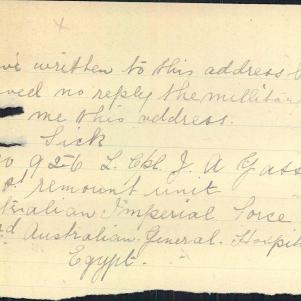 x
written to this address
no reply the millitar
me this address.
Sick
9256 L. Cpl J. A Gass
remount unit
tralian Imperial Force
rd Australian General Hospit
Egypt.